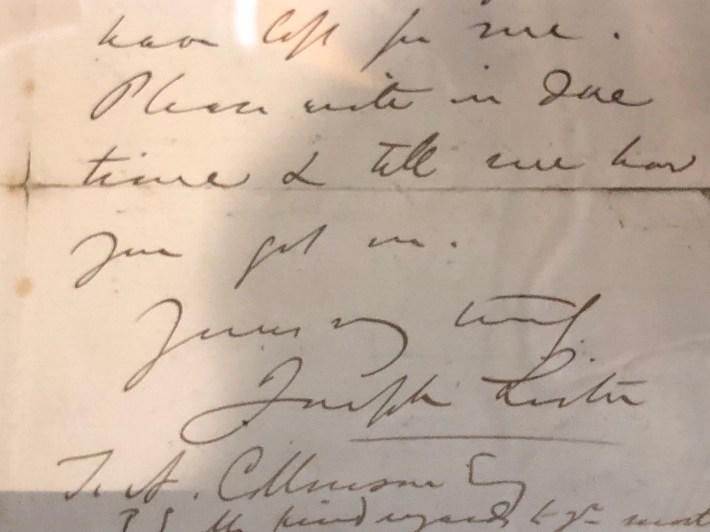 have left for me.
Please write in due
time & tell me how
you get on.
Yours very truly
Joseph Lister
To A. Esq
P.S. kind regards to yr